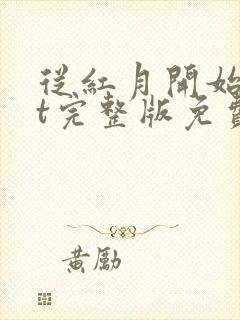 從紅月開始
t完整版免費
黃勵